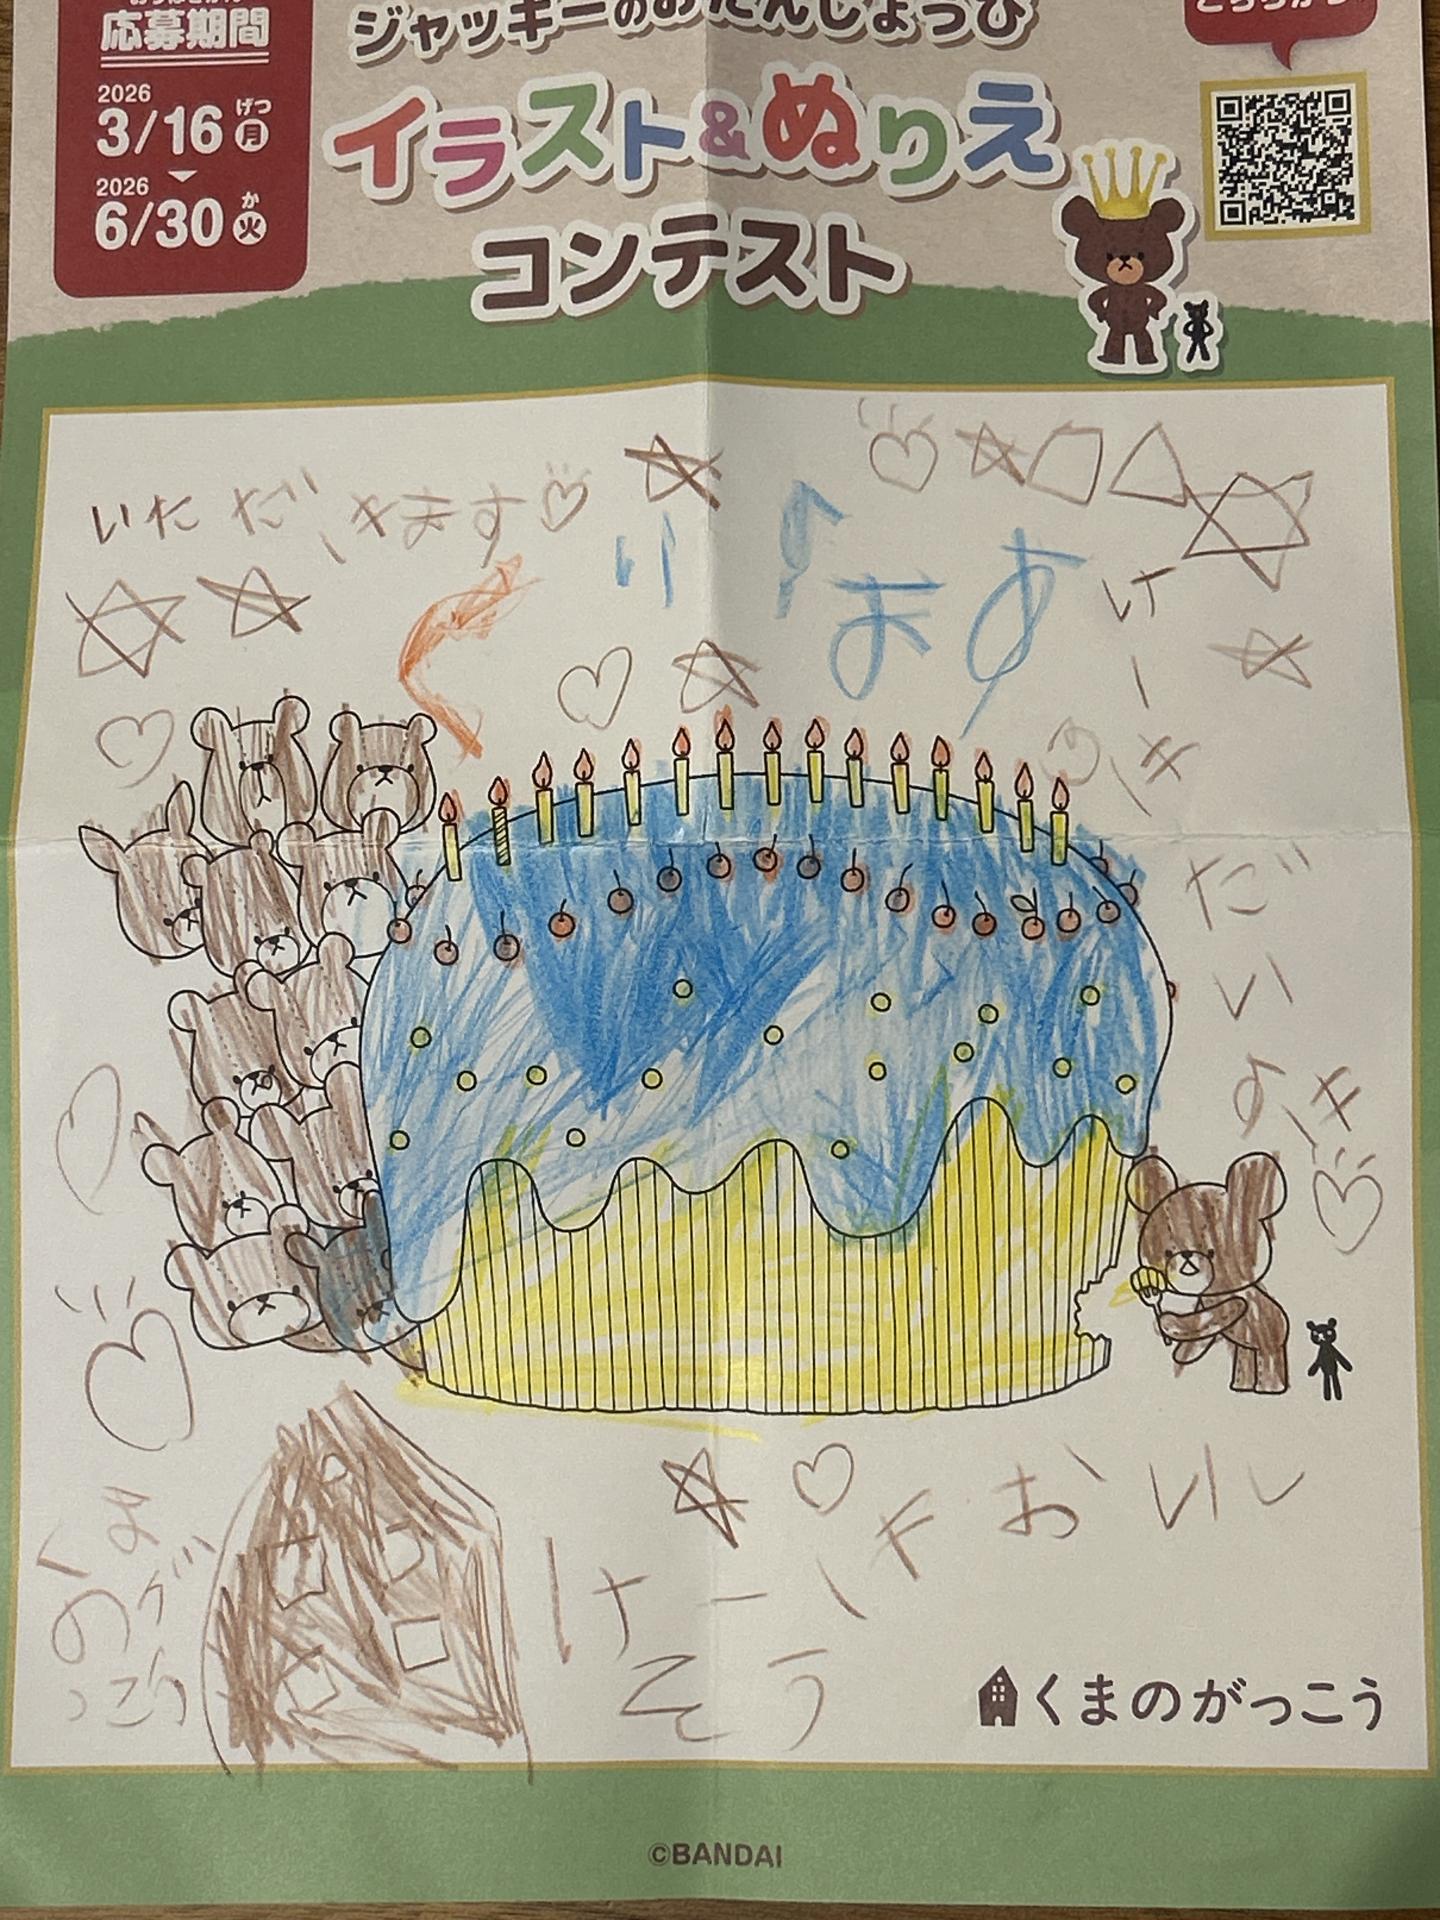 応募期間
2026
3/16 月
げつ
2026
6/30 火
か
ジャッキーのおたんじょうび
イラスト&ぬりえ
コンテスト
こちらから
いただきます
くります
けーき
だいすき
けーきおいし
そう
くまのがっこう
くまのがっこう
©BANDAI